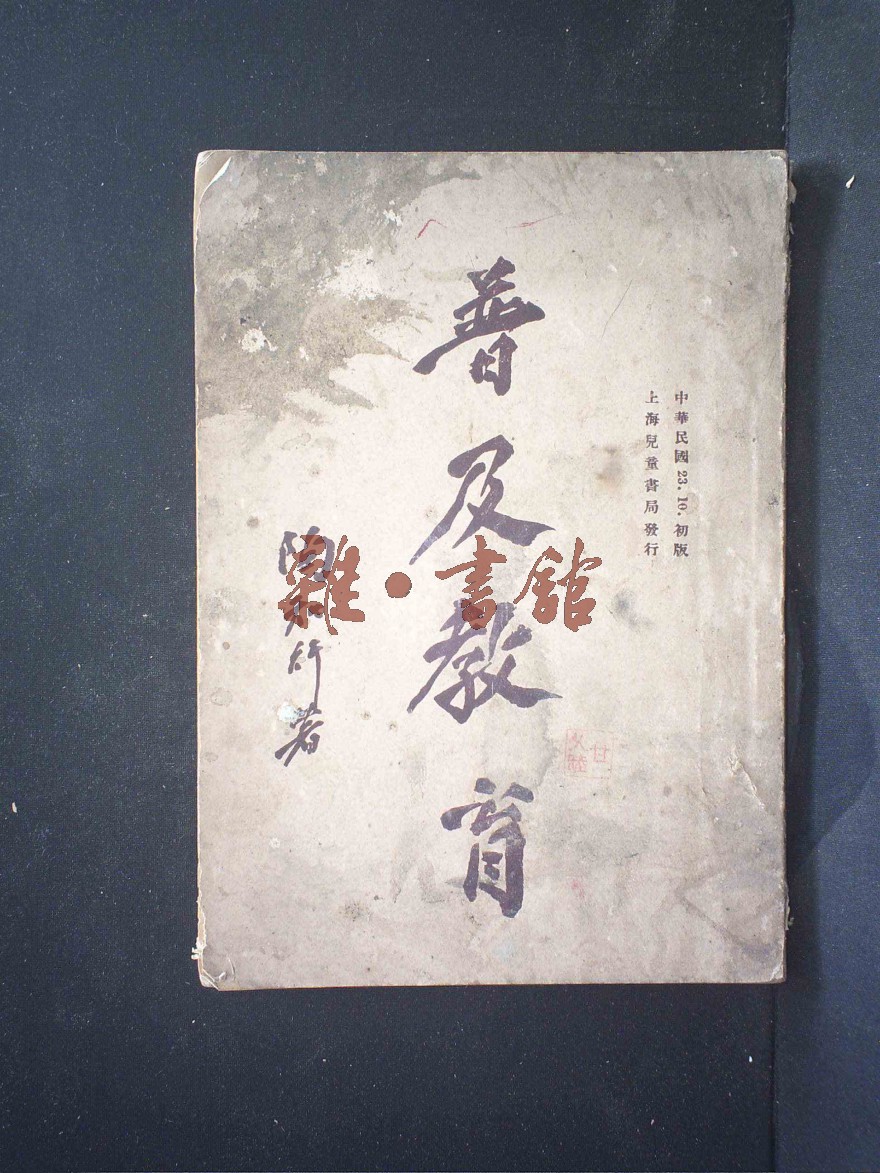 中華民國23.10.初版
上海兒童書局發行
普及教育
陶行著
雜·書館